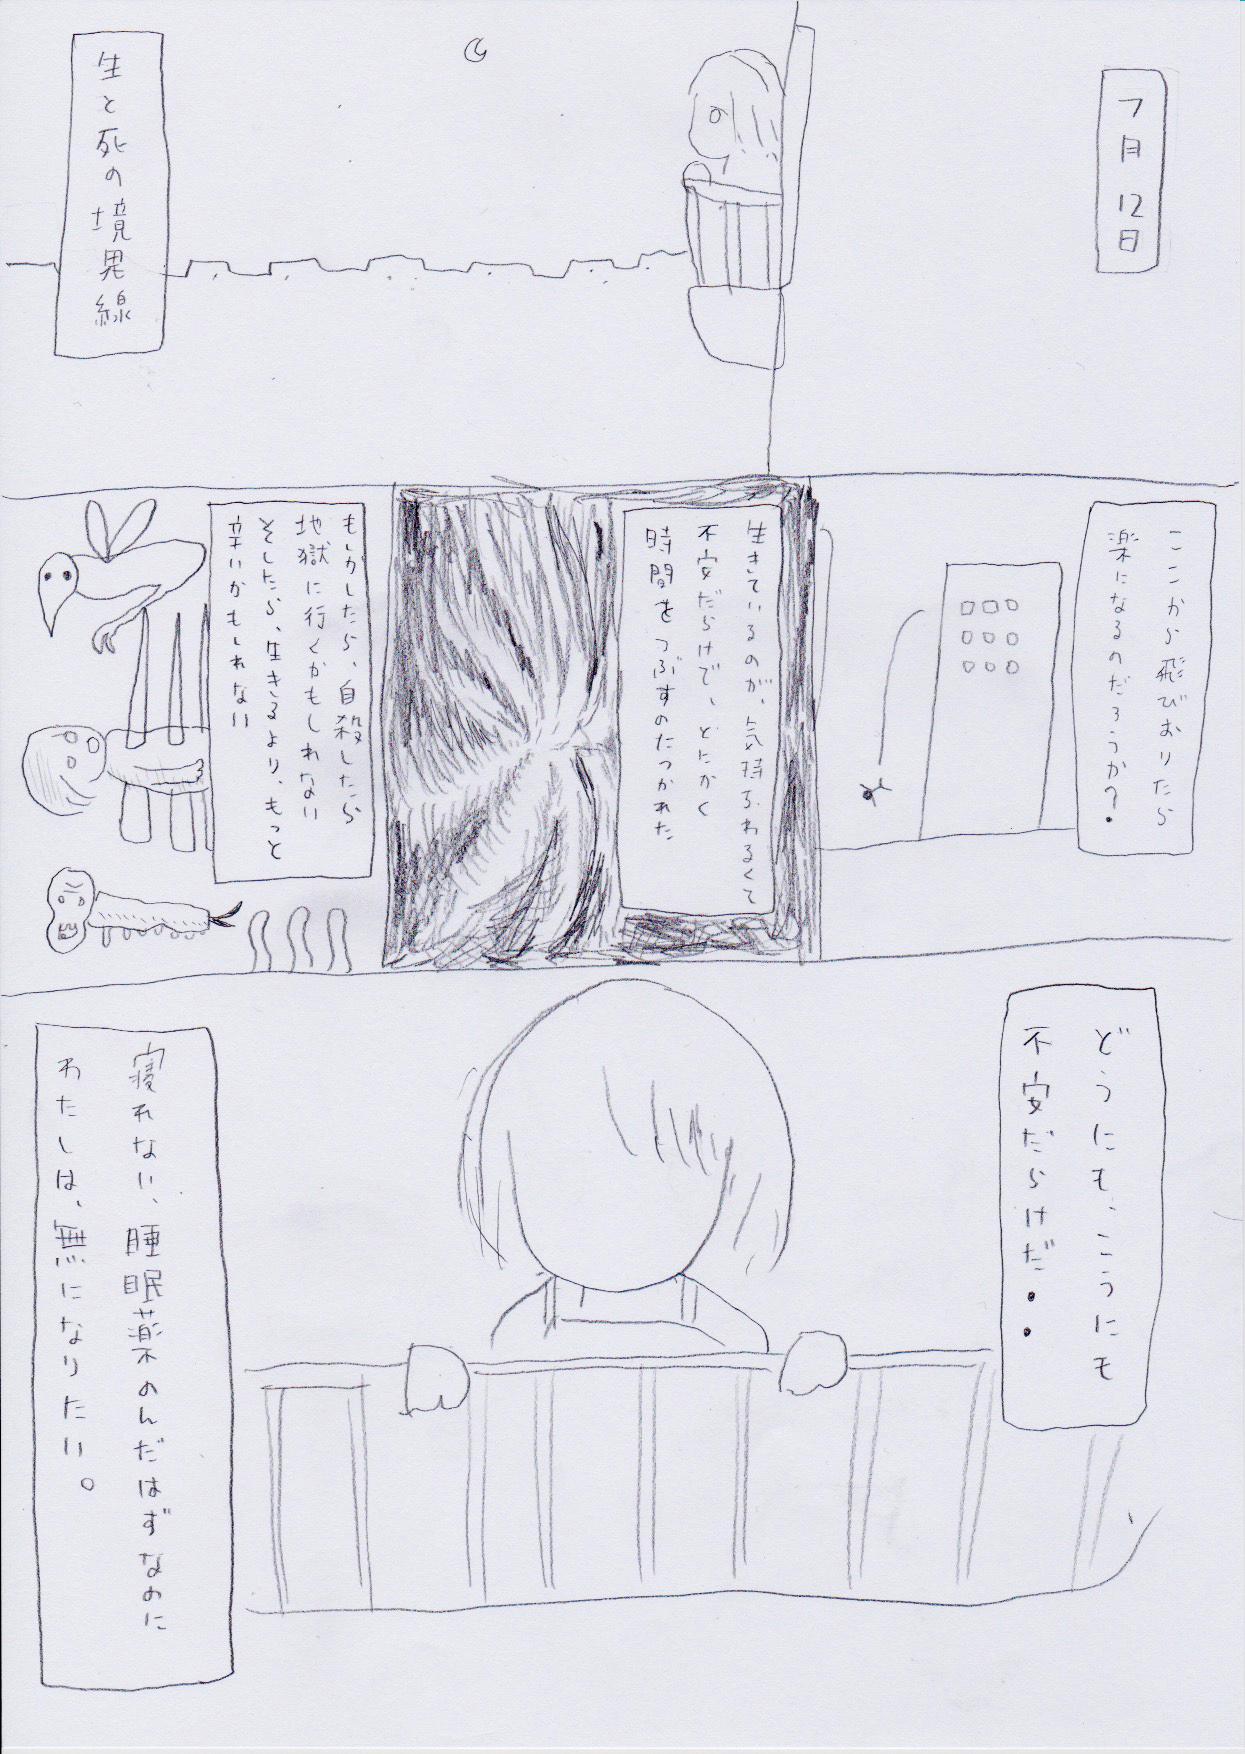 7月12日
生と死の境界線
ここから飛びおりたら
楽になるのだろうか?
生きているのが、気持ちわるくて
不安だらけで、とにかく
時間をつぶすのたつかれた
もしかしたら、自殺したら
地獄に行くかもしれない
そしたら、生きるより、もっと
辛いかもしれない
どうにも、こうにも
不安だらけだ・・
寝れない、睡眠薬のんだはずなのに
わたしは、無になりたい。